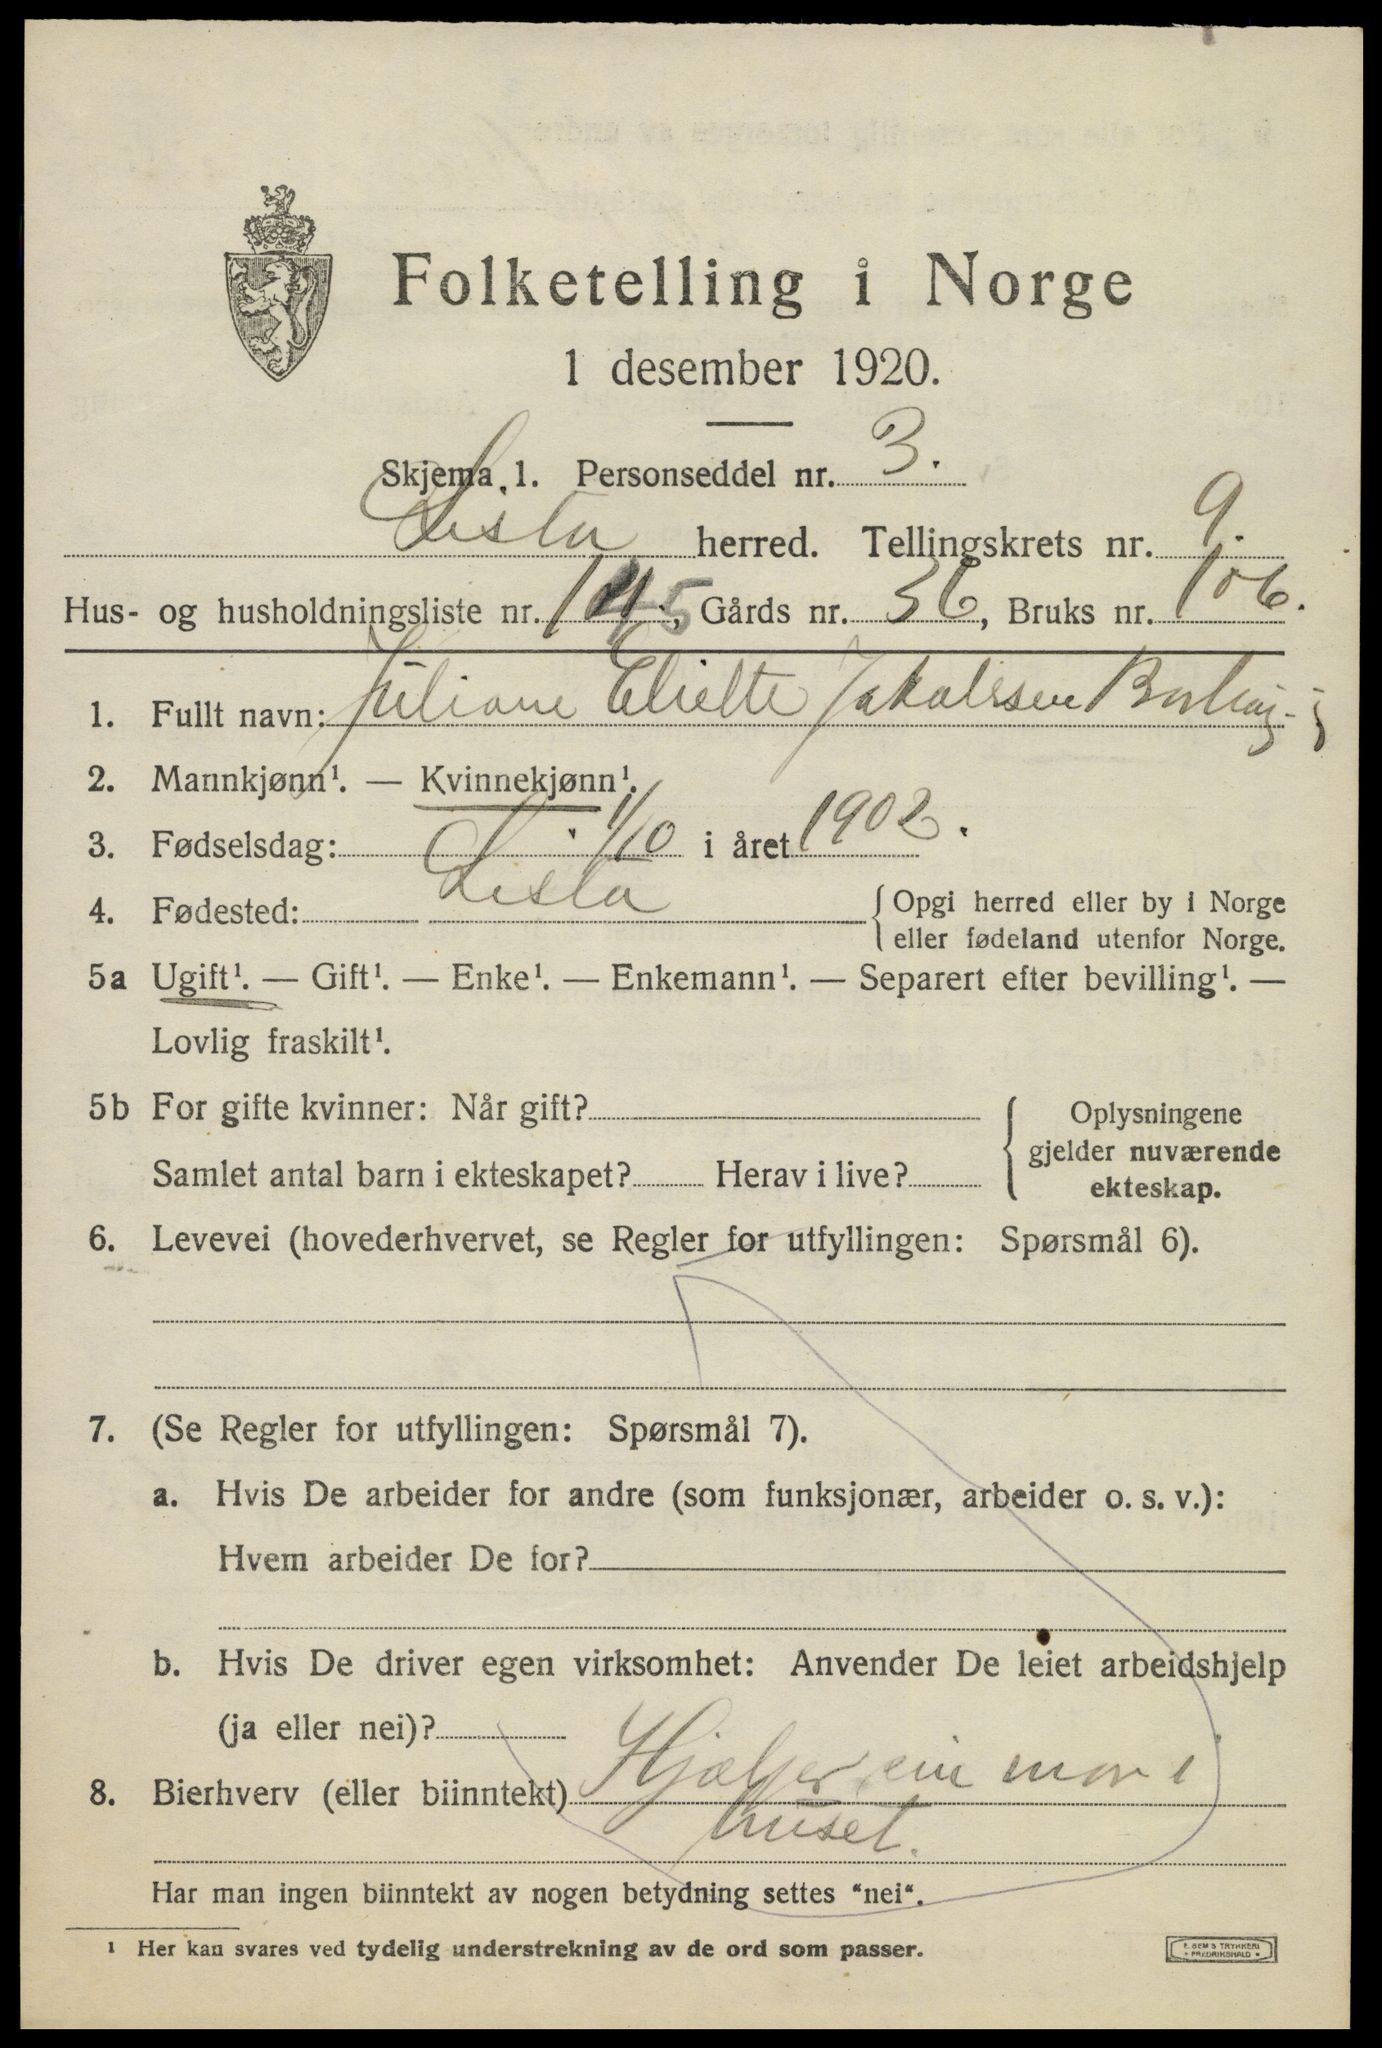 Folketelling i Norge
1 desember 1920.
Skjema 1. Personseddel nr. 3.
Lista herred. Tellingskrets nr. 9.
Hus- og husholdningsliste nr. 145, Gårds nr. 36, Bruks nr. 106.
1. Fullt navn: Juliane Jakobsen
2. Mannkjønn¹. — Kvinnekjønn¹.
3. Fødselsdag: 1/10 i året 1902.
4. Fødested: Lista {Opgi herred eller by i Norge
eller fødeland utenfor Norge.
5a Ugift¹. — Gift¹. — Enke¹. — Enkemann¹. — Separert efter bevilling¹. —
Lovlig fraskilt¹.
5b For gifte kvinner: Når gift?
Samlet antal barn i ekteskapet? Herav i live?
Oplysningene
gjelder nuværende
ekteskap.
6. Levevei (hovederhvervet, se Regler for utfyllingen: Spørsmål 6).
7. (Se Regler for utfyllingen: Spørsmål 7).
a. Hvis De arbeider for andre (som funksjonær, arbeider o. s. v.):
Hvem arbeider De for?
b. Hvis De driver egen virksomhet: Anvender De leiet arbeidshjelp
(ja eller nei)?
8. Bierhverv (eller biinntekt) Hjælper sin mor i
huset.
Har man ingen biinntekt av nogen betydning settes "nei".
¹ Her kan svares ved tydelig understrekning av de ord som passer.
E. SEM'S TRYKKERI
FREDRIKSHALD